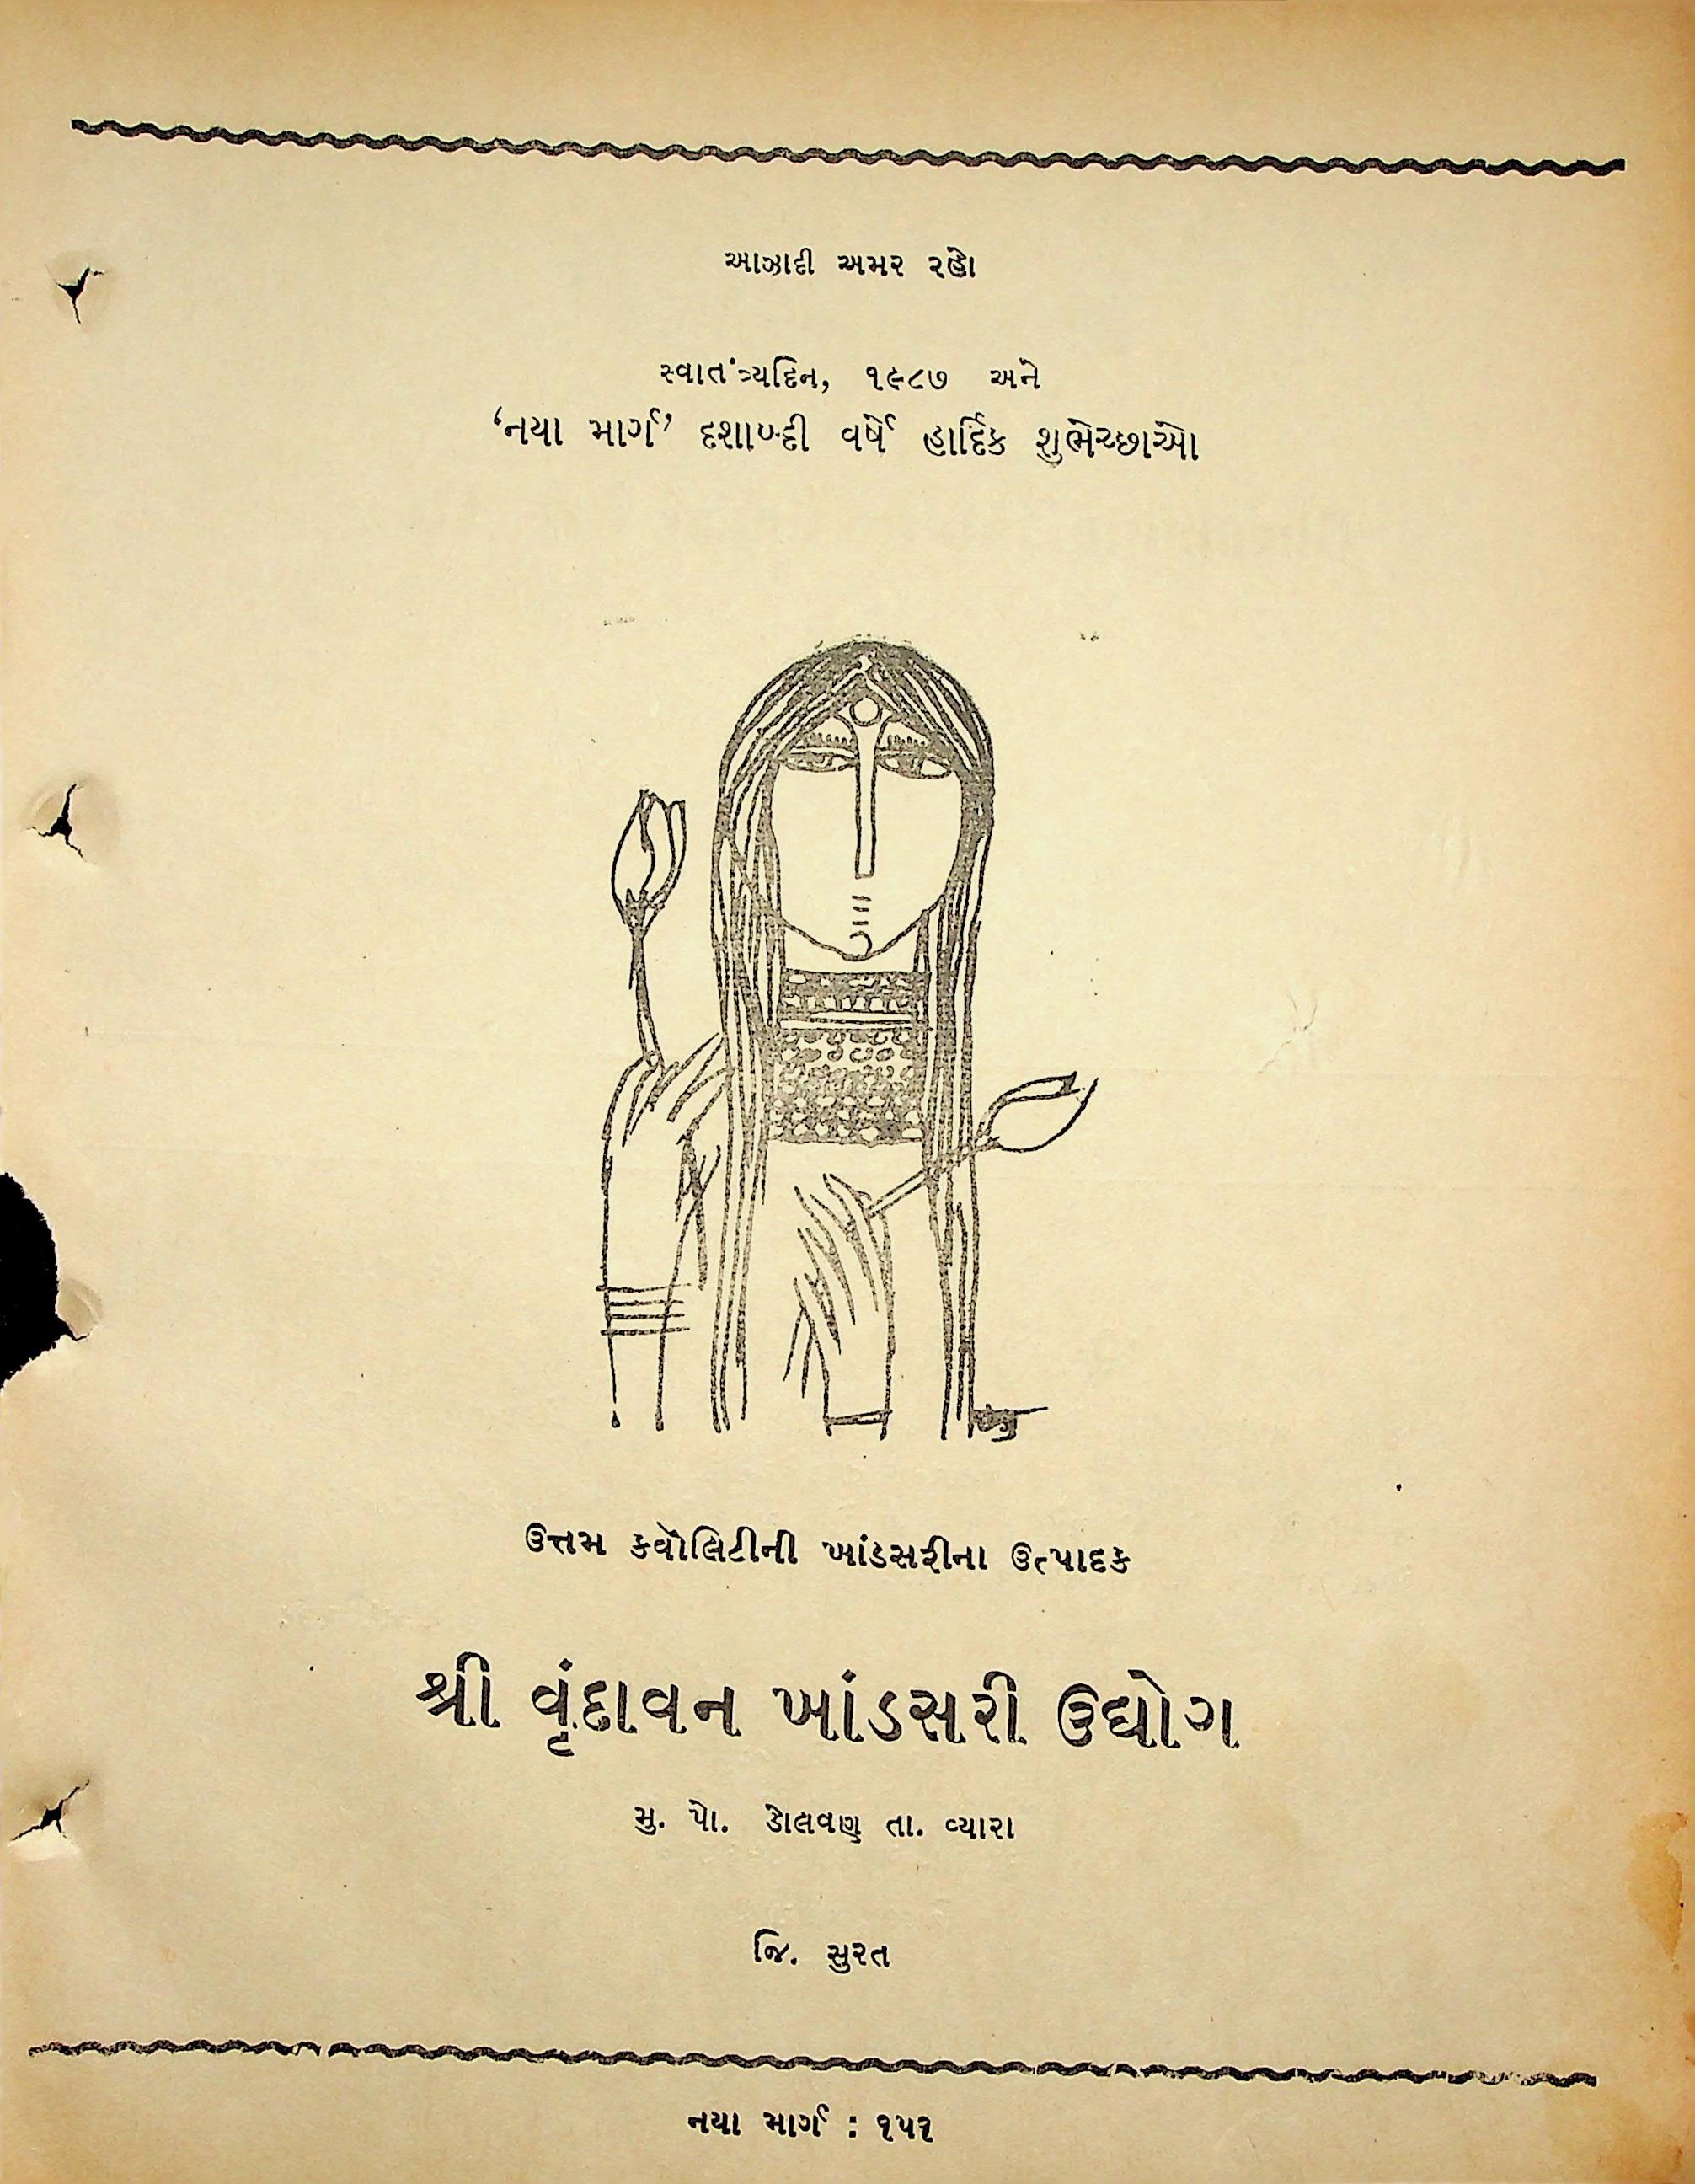 આઝાદી અમર રહો
સ્વાતંત્ર્યદિન, ૧૯૮૭ અને
‘નયા માર્ગ’ દશાબ્દી વર્ષે હાર્દિક શુભેચ્છાઓ
ઉત્તમ ક્વોલિટીની ખાંડસરીના ઉત્પાદક
શ્રી વૃંદાવન ખાંડસરી ઉદ્યોગ
મુ. પો. ડોલવણ તા. વ્યારા
જિ. સુરત
નયા માર્ગ : ૧૫૧